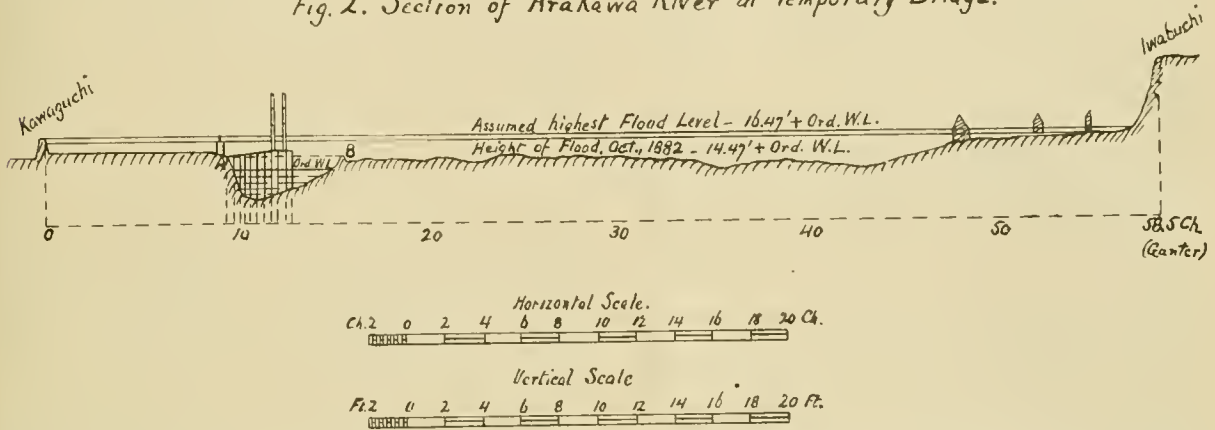 Fig. 2. Section of Arakawa River at Temporary Bridge.
Kawaguchi
Iwabuchi
Assumed highest Flood Level - 16.47' + Ord. W.L.
Height of Flood, Oct., 1882 - 14.47' + Ord. W.L.
A
Ord W.L.
B
0 10 20 30 40 50 58.5 Ch.
(Ganter)
Horizontal Scale.
Ch. 2 0 2 4 6 8 10 12 14 16 18 20 Ch.
Vertical Scale
Ft. 2 0 2 4 6 8 10 12 14 16 18 20 Ft.